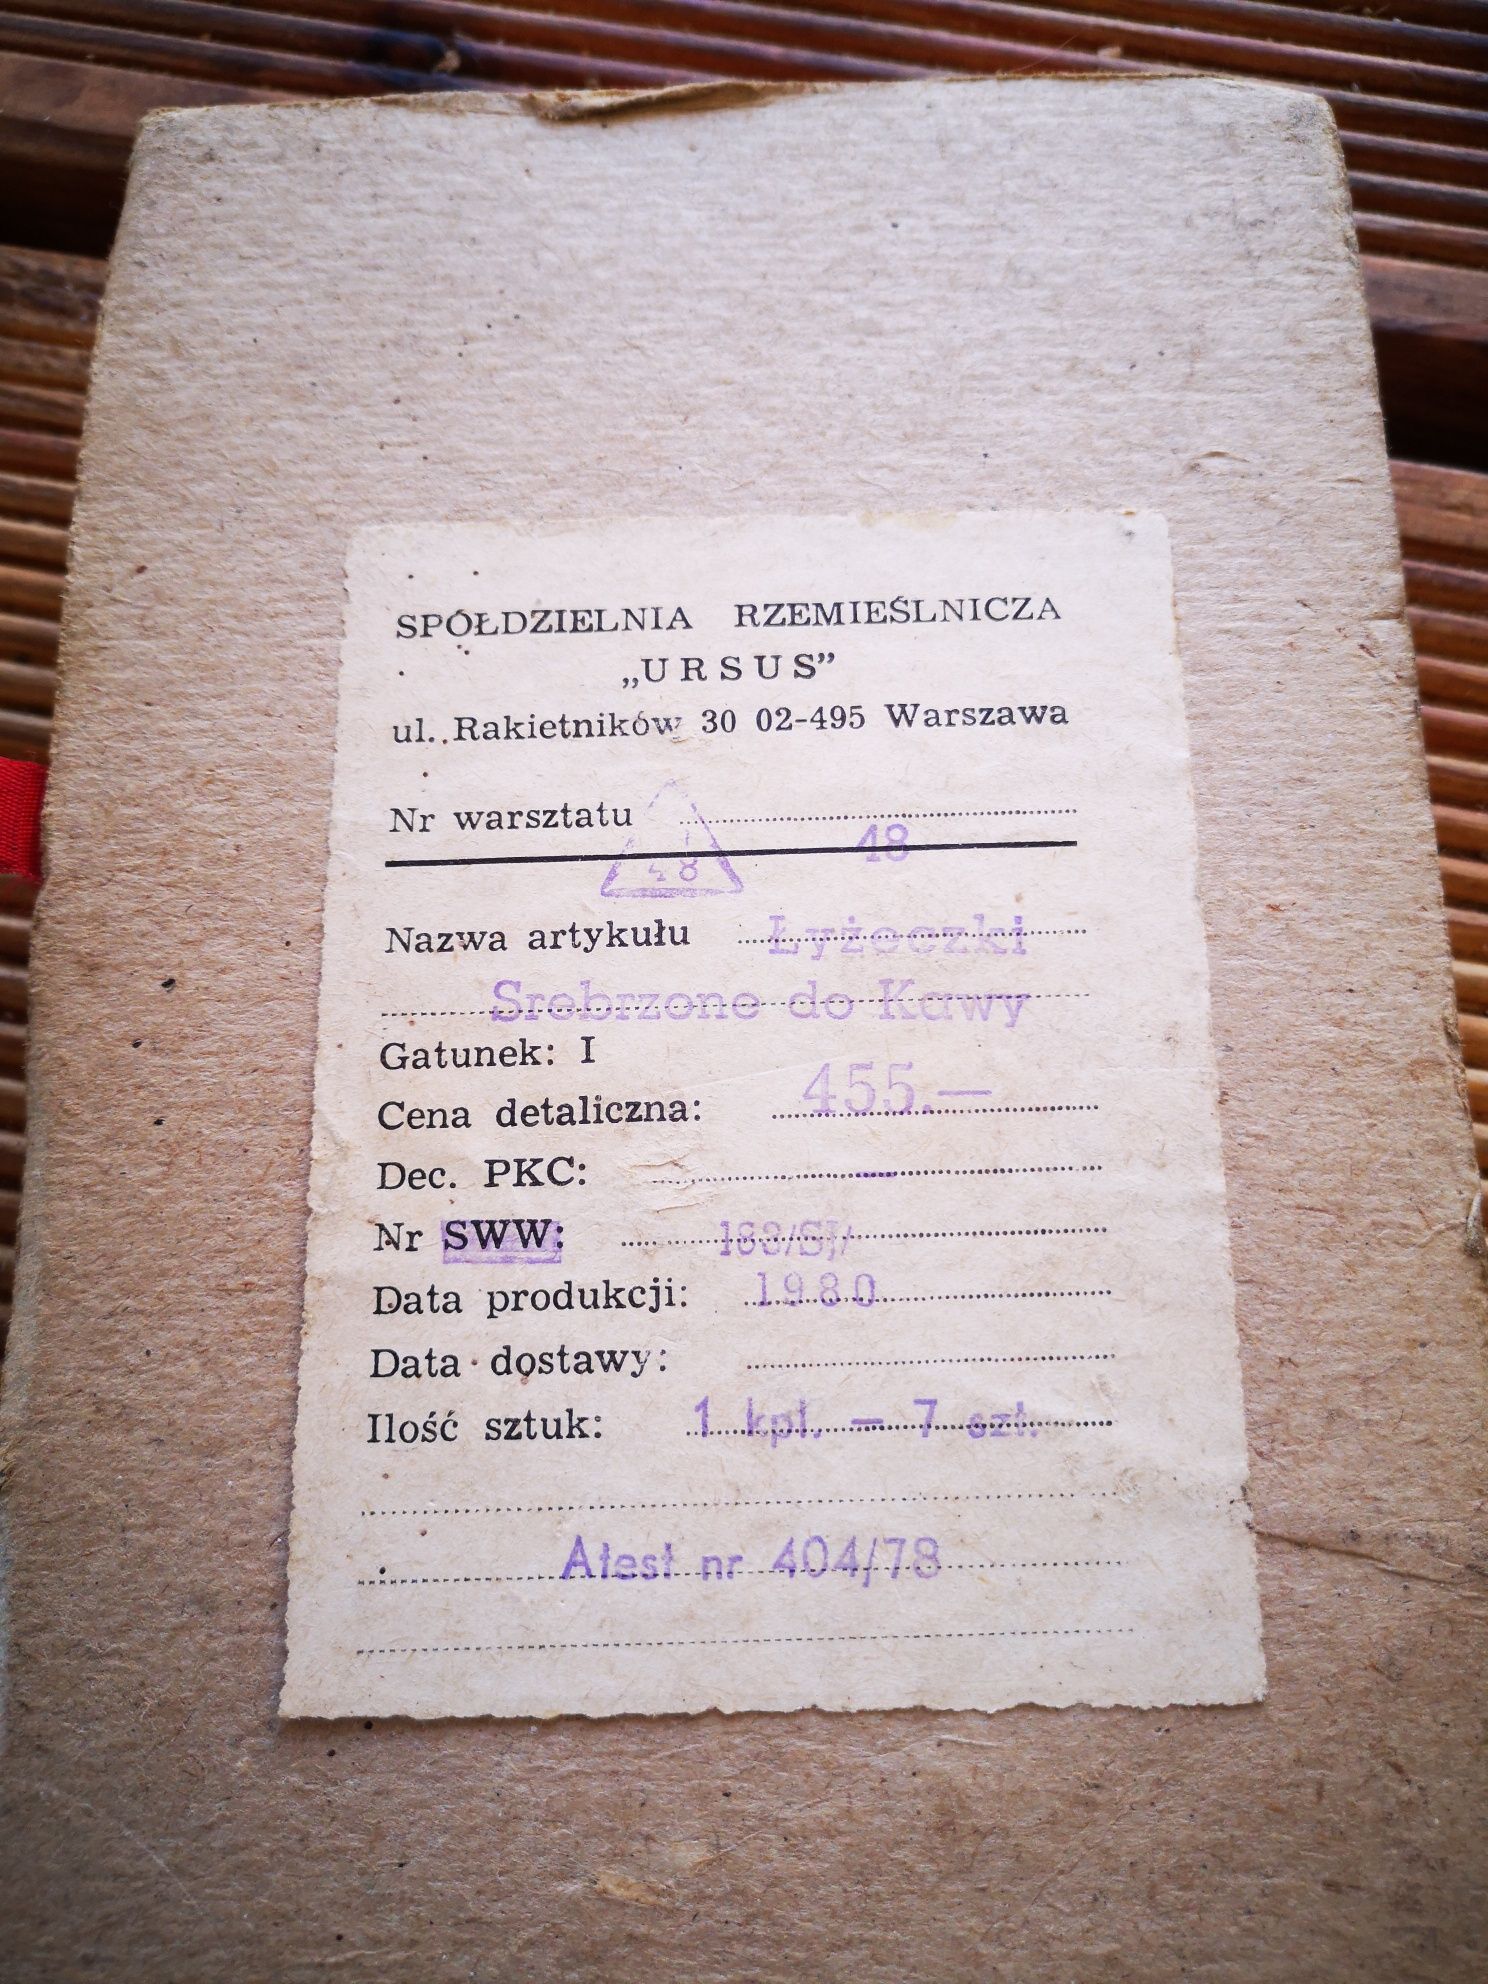 SPÓŁDZIELNIA RZEMIEŚLNICZA
„URSUS”
ul. Rakietników 30 02-495 Warszawa
Nr warsztatu
48
48
Nazwa artykułu Łyżeczki
Srebrzone do Kawy
Gatunek: I
Cena detaliczna: 455.—
Dec. PKC: —
Nr SWW:
Data produkcji: 1980
Data dostawy:
Ilość sztuk: 1 kpl. — 7 szt.
Atest nr 404/78